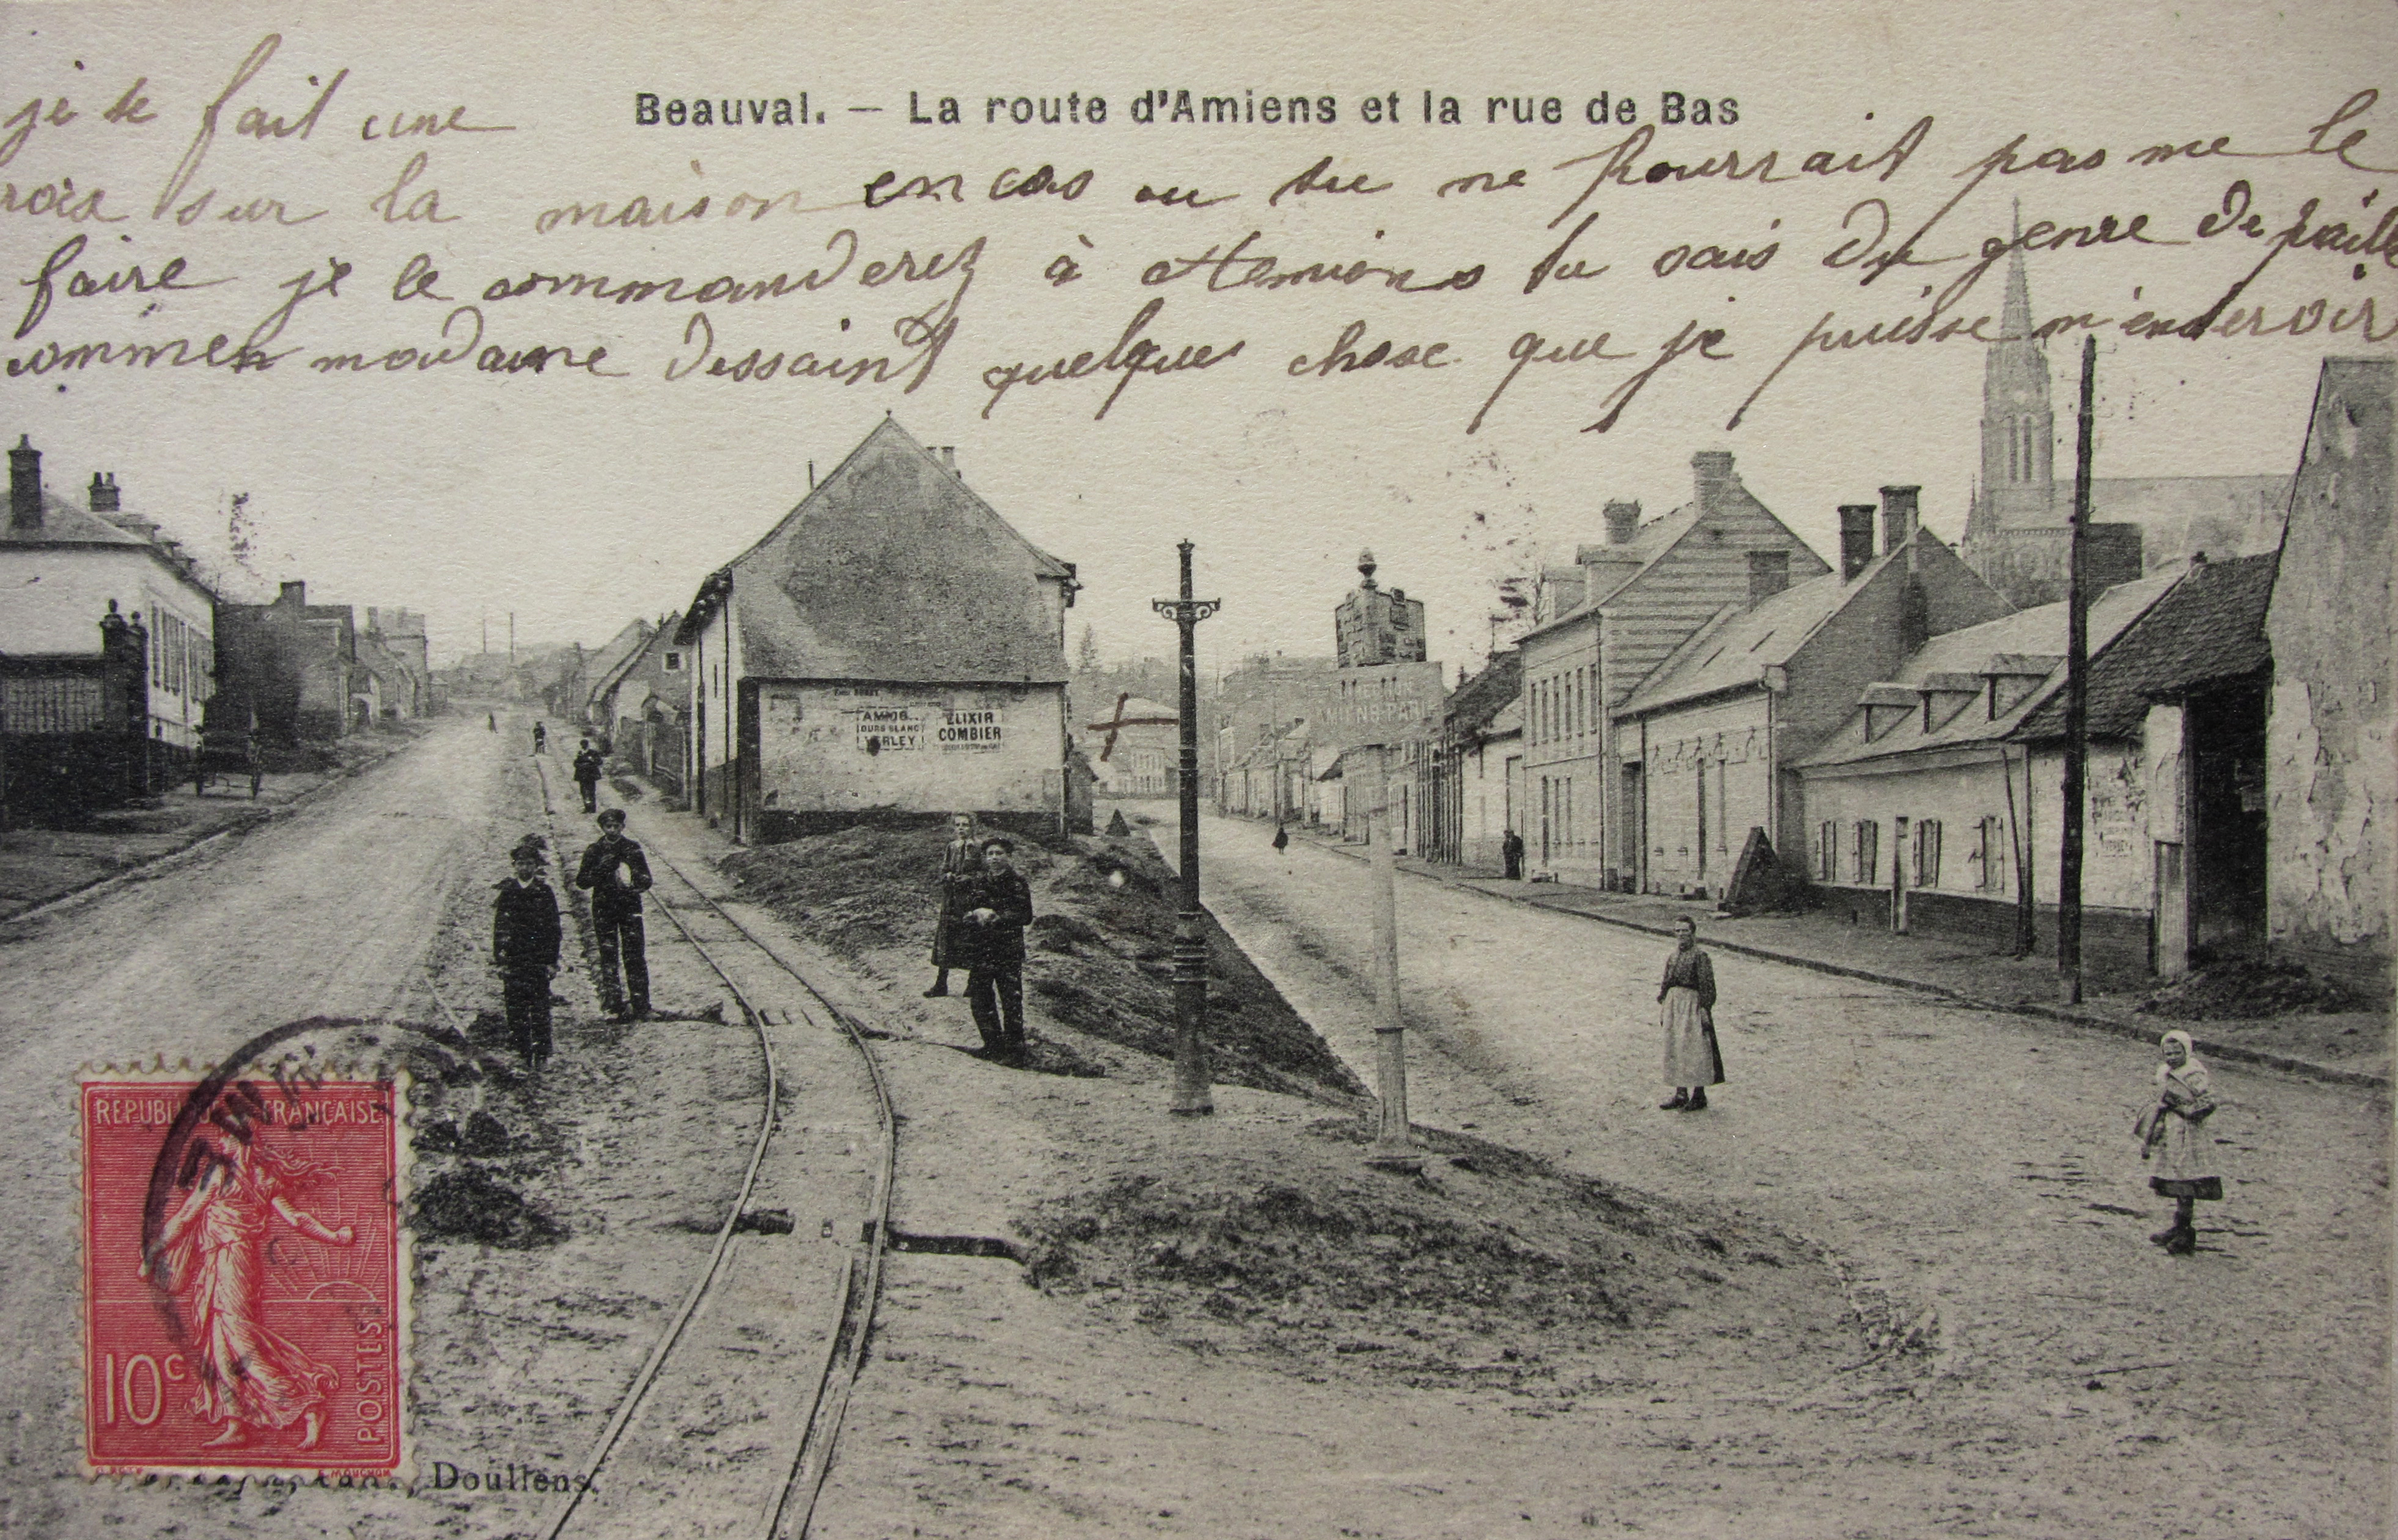 Beauval. — La route d'Amiens et la rue de Bas
je te fait une
roix sur la maison en cas ou tu ne pourrait pas me le
faire je le commanderez à Amiens tu sais du genre de paille
commen madame Dessaint quelques chose que je puisse m'en servoir
AMIDO
OURS BLANC
VERLEY
ELIXIR
COMBIER
AMIENS PARIS
REPUBLIQUE FRANÇAISE
10c
POSTES
E. MOUCHON
Doullens.